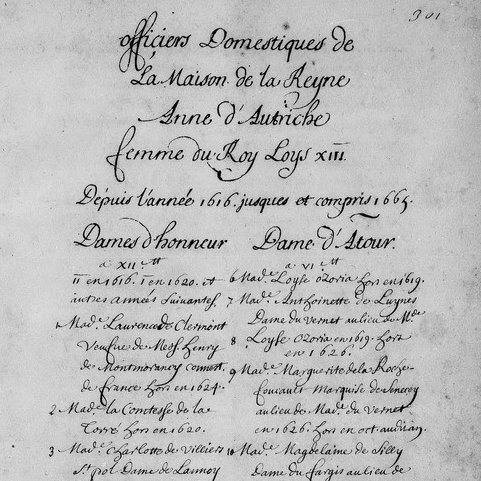 301
officiers Domestiques de
La Maison de la Reyne
Anne d'Autriche
femme du Roy Loys XIII.
Dépuis l'année 1616. jusques et compris 1665.
Dames d'honneur
a XII tt
II en 1616. I en 1620. et
autres années suivantes.
1 Made. Laurence de Clermont
Veufve de Messe henry
de Montmorancy connest.
de france hors en 1624.
2 Made. la Comtesse de la
Torre hors en 1620.
3 Made. Charlotte de Villiers
St. pol Dame de Lannoy
Dame d'Atour.
a VI tt
6 Made. Loyse Ozoria hors en 1619.
7 Made. Anthoinette de Luynes
Dame du Vernet au lieu de Made.
8 Loyse Ozoria en 1619. hors
en 1626.
9 Made. Marguerite de la Roche
foucault Marquise de Senecey
au lieu de Made. du Vernet
en 1626. hors en oct. aud. an.
10 Made. Magdelaine de Silly
Dame du fargis au lieu de